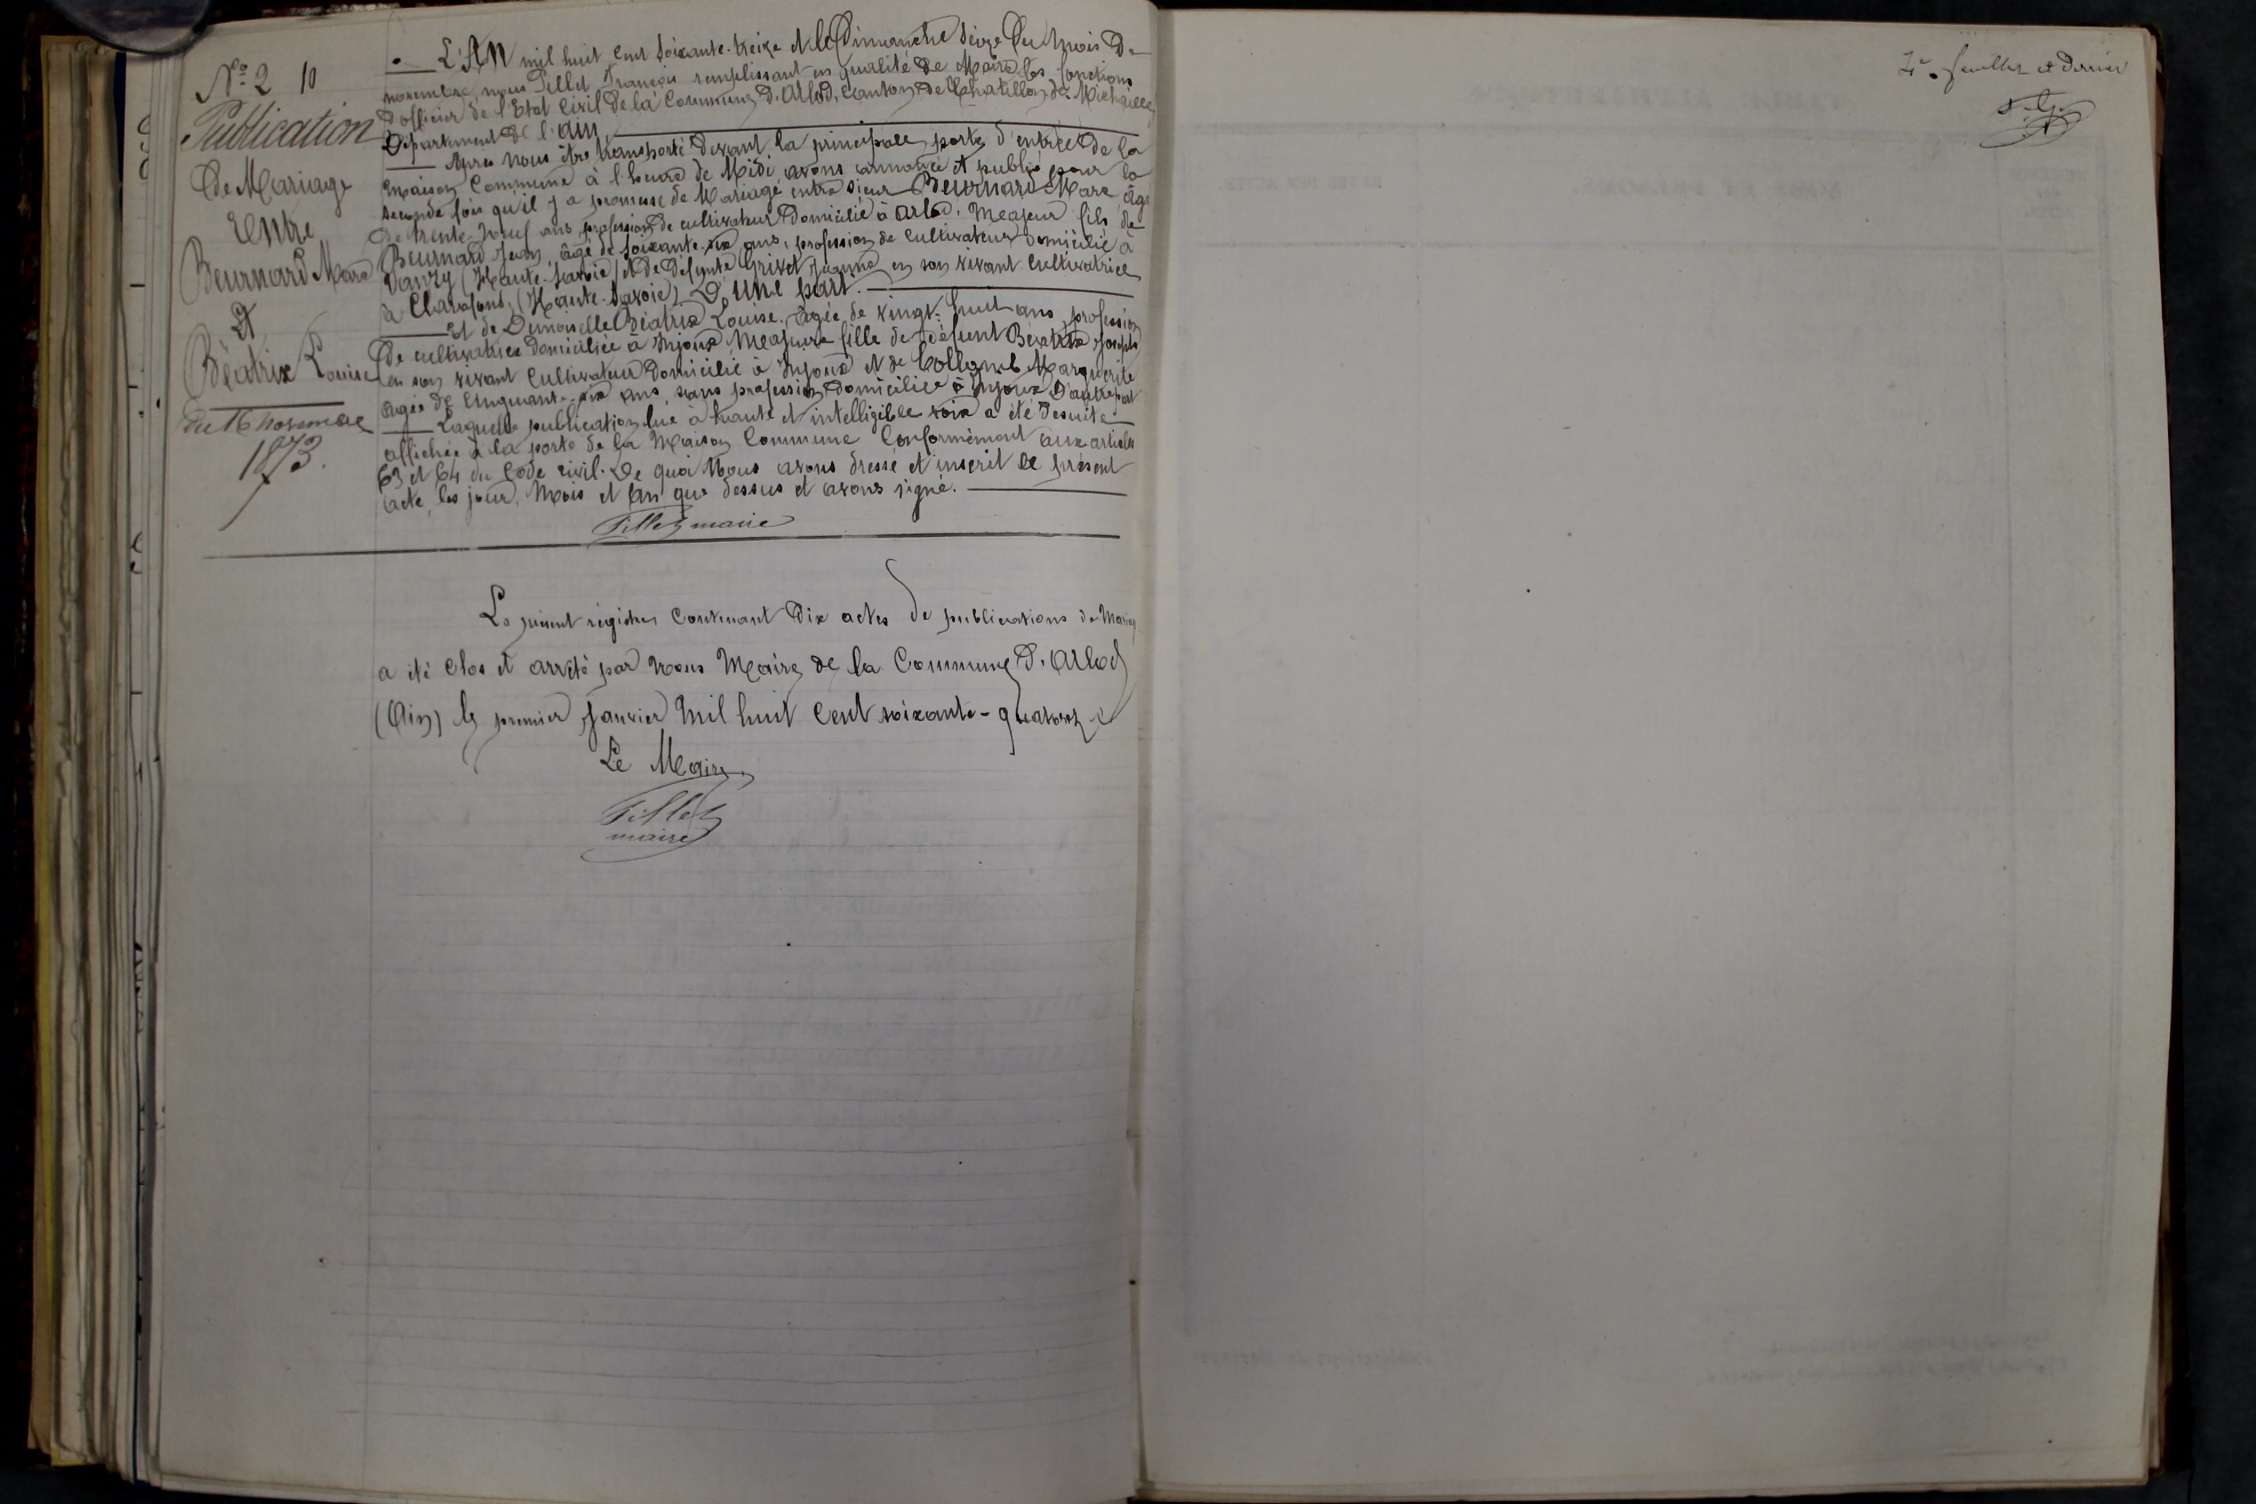 Nº 2 10
Publication
De Mariage
Entre
Beurnard Marc
Et
Béatrix Louise
du 16 novembre
1873.
L'AN mil huit cent soixante-treize et le Dimanche seize Du mois De
novembre, nous Pillet François remplissant en qualité de Maire les fonctions
D'officier de l'Etat Civil de la Commune d'Arlod, canton de Chatillon de Michaille
Département de l'Ain,
Après nous être transporté devant la principale porte d'entrée de la
Maison Commune à l'heure de Midi, avons annoncé et publié pour la
seconde fois qu'il y a promesse de Mariage entre sieur Beurnard Marc, âgé
De trente-neuf ans, profession de cultivateur Domicilié à Arlod, Majeur fils de
Beurnard Jean, âgé de soixante-six ans, profession de Cultivateur Domicilié à
Vanzy (Haute-Savoie) et de Défunte Grivet Jeanne en son vivant Cultivatrice
à Clarafond, (Haute-Savoie) D'Une part.
Et de Demoiselle Béatrix Louise, âgée de vingt-huit ans, profession
De cultivatrice domiciliée à Injoux Majeure fille de défunt Béatrix Joseph
en son vivant Cultivateur Domicilié à Injoux et de Collomb Marguerite
âgée de Cinquante-six ans, sans profession Domiciliée à Injoux D'autre part
Laquelle publication lue à haute et intelligible voix a été desuite
affichée à la porte de la Maison Commune Conformément aux articles
63 et 64 du Code civil. De quoi Nous avons dressé et inscrit le présent
acte, les jour, Mois et an que dessus et avons signé.
Pillet maire
Le présent régistre Contenant Dix actes de publications de Mariag
a été Clos et arrêté par nous Maire de la Commune d'Arlod
(Ain) le premier Janvier Mil huit Cent soixante-quatorze
Le Maire
Pillet
maire
feuillet et Dernier